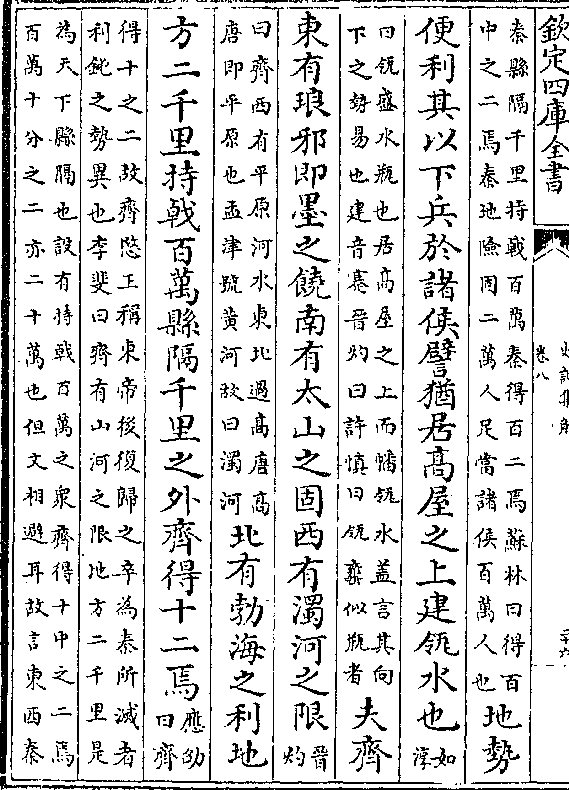 欽定四庫全書
史記集解
卷八
秦縣隔千里持戟百萬秦得百二焉蘇林曰得百
中之二焉秦地險固二萬人足當諸侯百萬人也
地勢
便利其以下兵於諸侯譬猶居高屋之上建瓴水也
如
淳
曰瓴盛水瓶也居高屋之上而幡瓴水蓋言其向
下之勢易也建音蹇晉灼曰許慎曰瓴甕似瓶者
夫齊
東有琅邪即墨之饒南有太山之固西有濁河之限
晉
灼
曰齊西有平原河水東北過高唐高
唐即平原也孟津號黃河故曰濁河
北有勃海之利地
方二千里持戟百萬縣隔千里之外齊得十二焉
應劭
曰齊
得十之二故齊愍王稱東帝後復歸之卒為秦所滅者
利鈍之勢異也李斐曰齊有山河之限地方二千里是
為天下縣隔也設有持戟百萬之衆齊得十中之二焉
百萬十分之二亦二十萬也但文相避耳故言東西秦